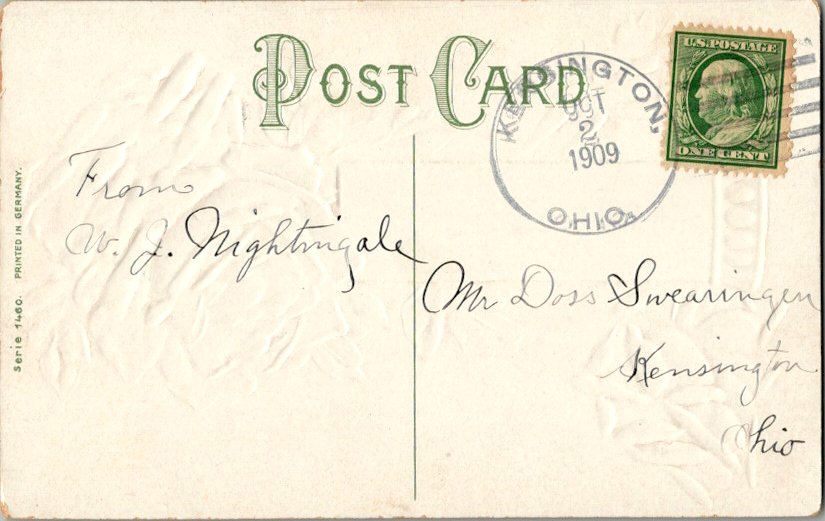 POST CARD
KENSINGTON,
OCT
2
1909
OHIO.
U.S. POSTAGE
ONE CENT
From
W. J. Nightingale
Mr Doss Swearingen
Kensington
Ohio
Serie 1460. PRINTED IN GERMANY.